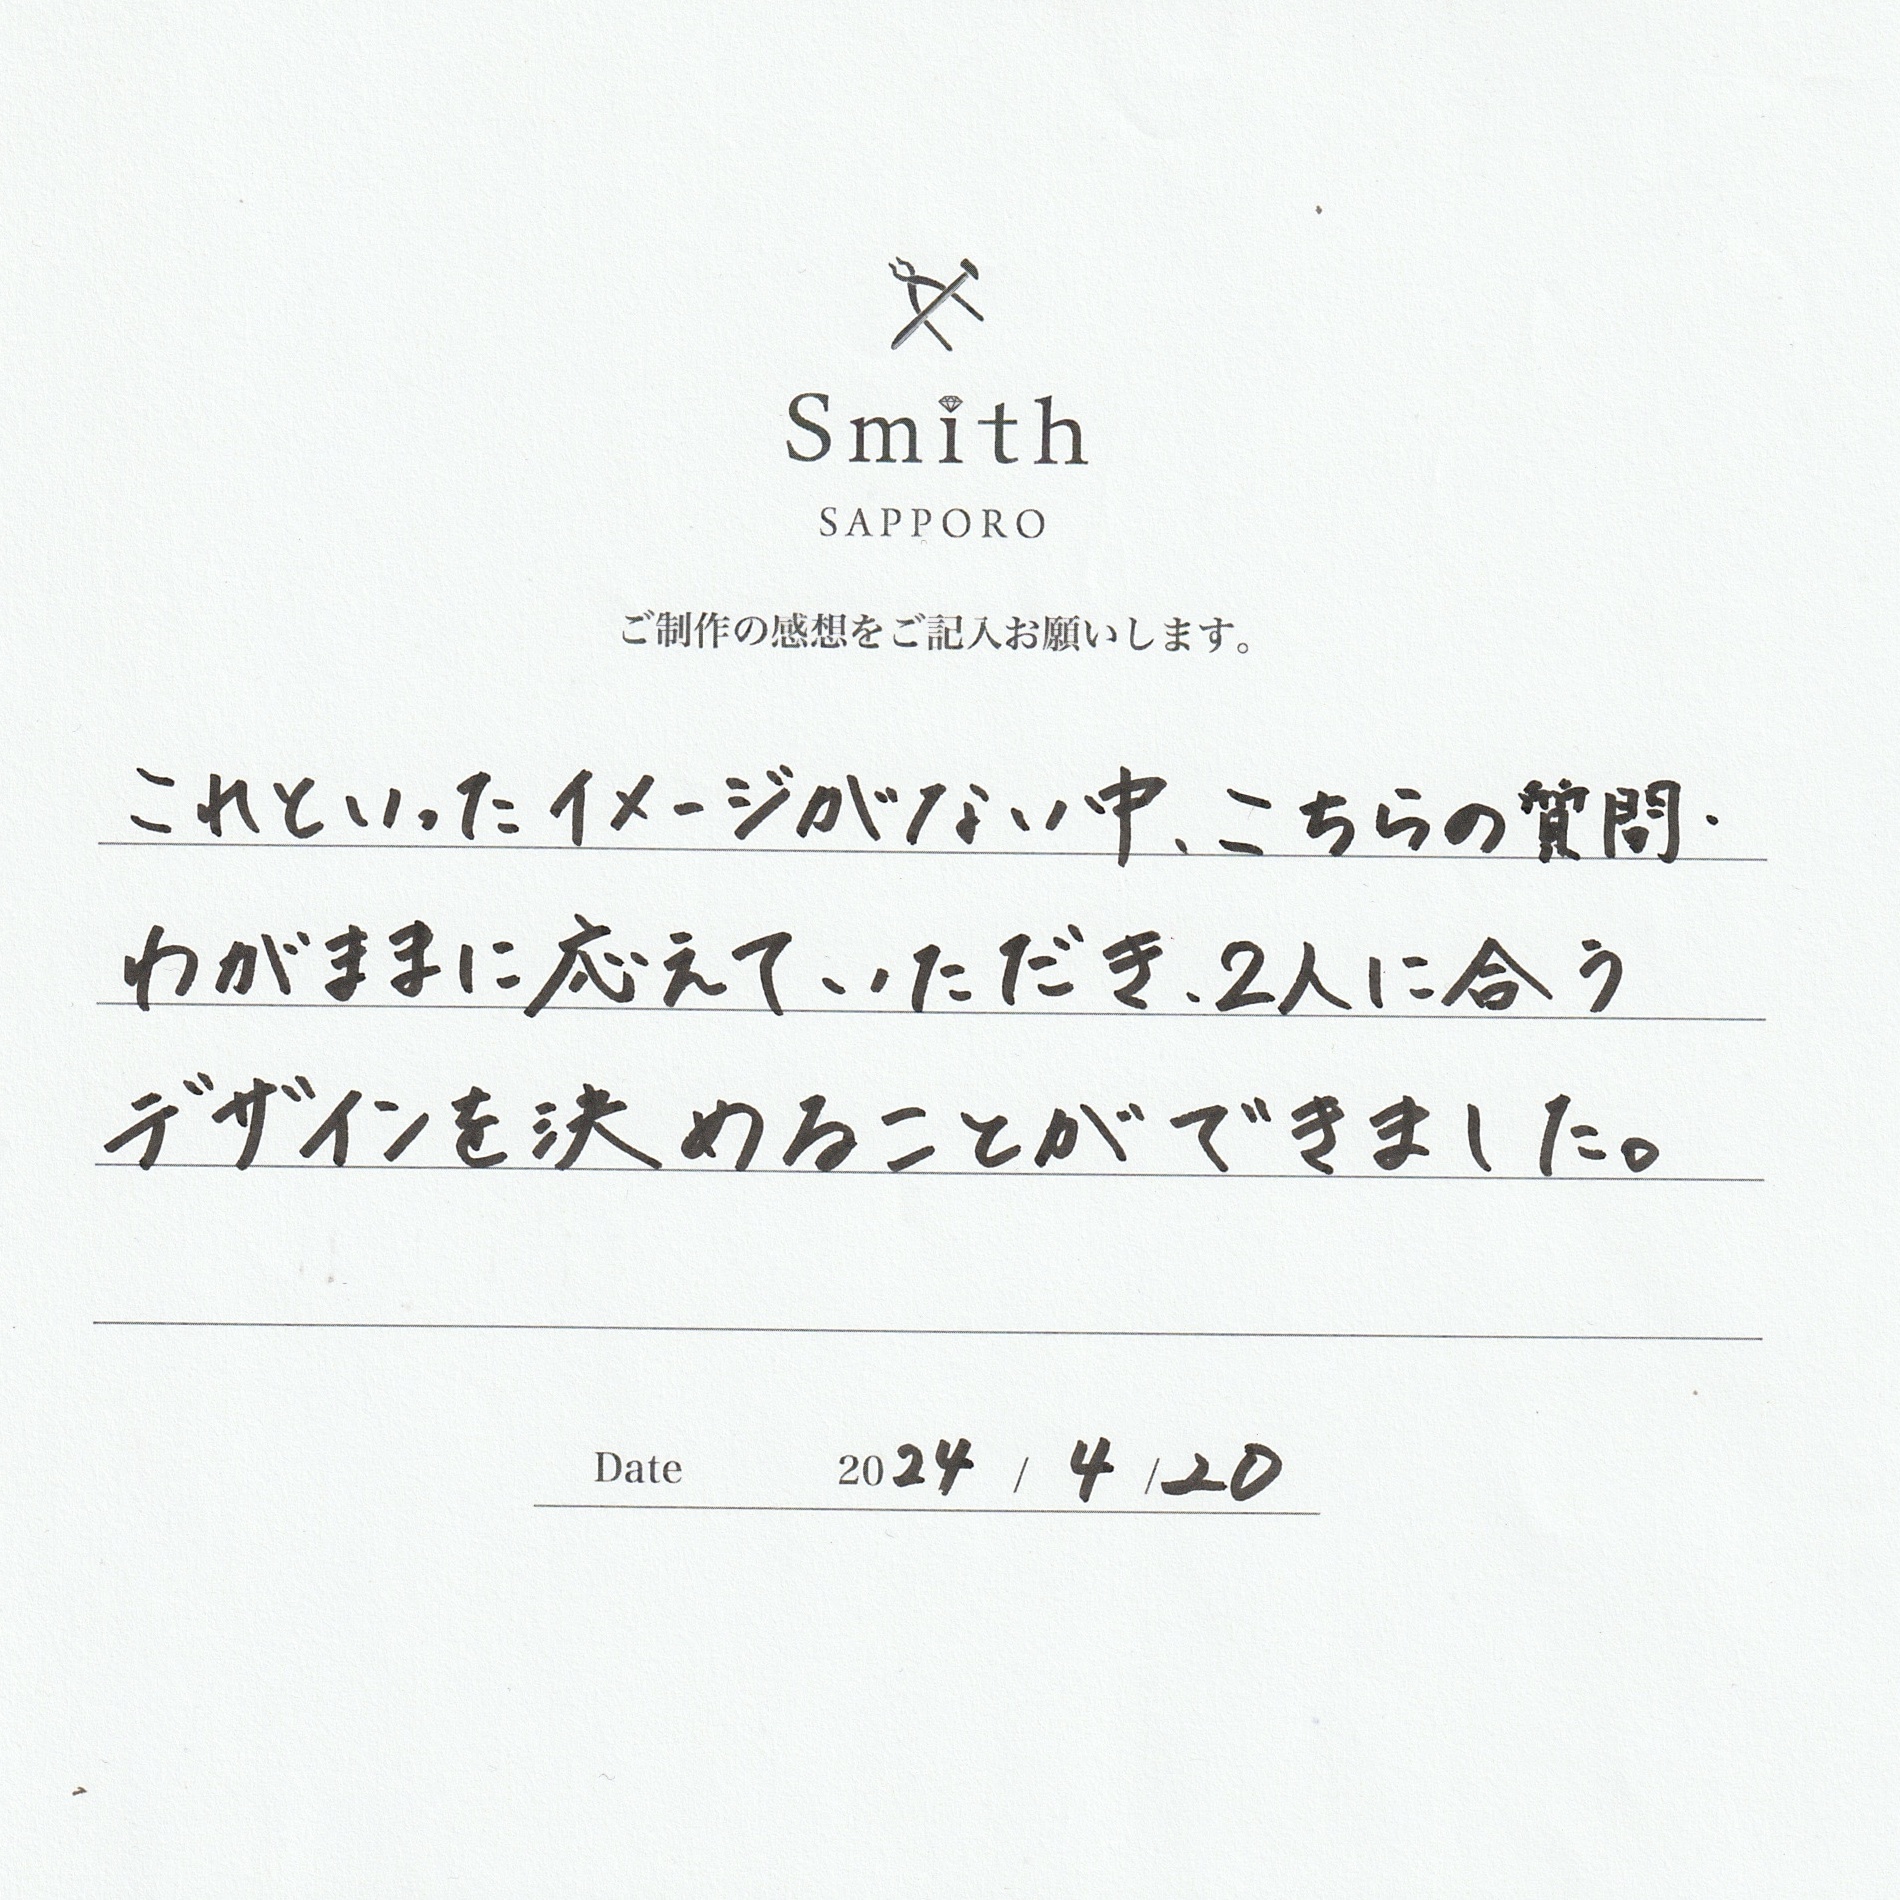 Smith
SAPPORO
ご制作の感想をご記入お願いします。
これといったイメージがない中、こちらの質問・
わがままに応えていただき、2人に合う
デザインを決めることができました。
Date 2024 / 4 / 20